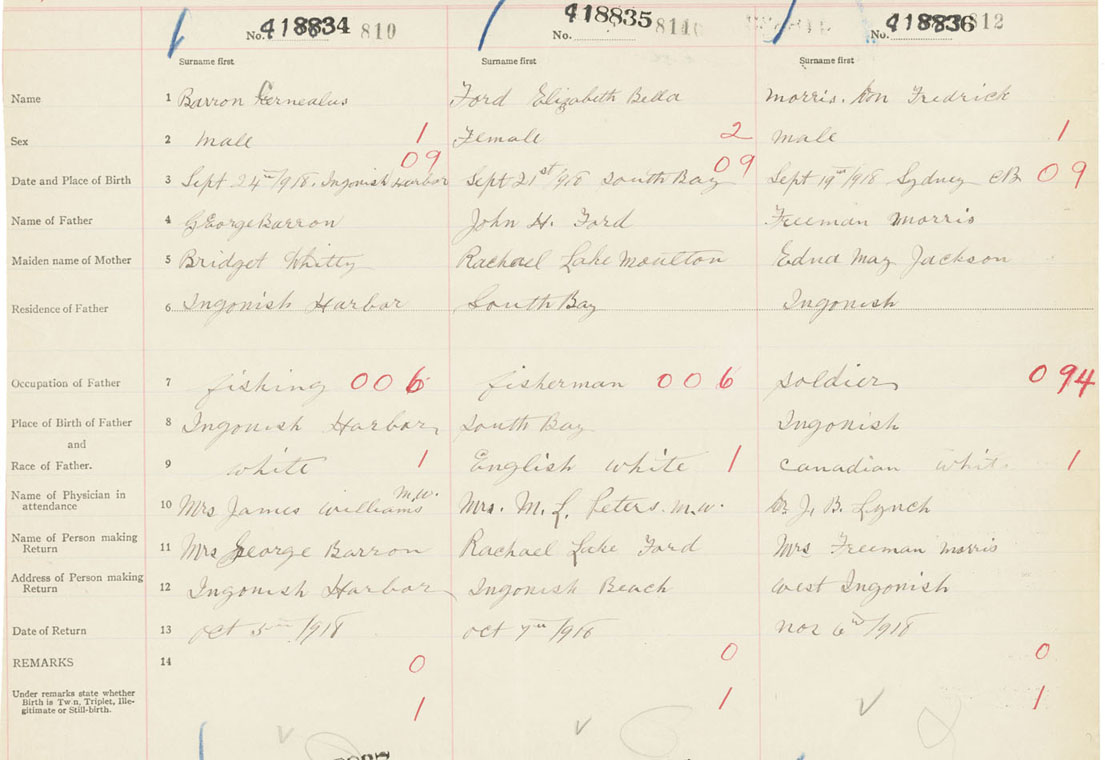 No. 418834 810 No. 418835 811 No. 418836 812
Surname first Surname first Surname first
Name 1 Barron Cernealus Ford Elizabeth Bella Morris. Don Fredrick
Sex 2 male 1 Female 2 male 1
09 09
Date and Place of Birth 3 Sept 24th/1918. Ingonish Harbor Sept 21st/918 South Bay Sept 19th/1918 Sydney CB 09
Name of Father 4 GEorge Barron John H. Ford Freeman Morris
Maiden name of Mother 5 Bridget Whitty Rachael Lake Moulton Edna May Jackson
Residence of Father 6 Ingonish Harbor South Bay Ingonish
Occupation of Father 7 fishing 006 fisherman 006 Soldier 094
Place of Birth of Father 8 Ingonish Harbor South Bay Ingonish
and
Race of Father. 9 white 1 English white 1 Canadian white 1
Name of Physician in attendance 10 Mrs James Williams m.w. Mrs. M. L. Peters. m.w. Dr J. B. Lynch
Name of Person making Return 11 Mrs George Barron Rachael Lake Ford Mrs Freeman Morris
Address of Person making Return 12 Ingonish Harbor Ingonish Beach West Ingonish
Date of Return 13 Oct 5th/1918 Oct 7th/1918 Nov 6th/1918
REMARKS 14 0 0 0
Under remarks state whether
Birth is Twin, Triplet, Ille-
gitimate or Still-birth. 1 1 1